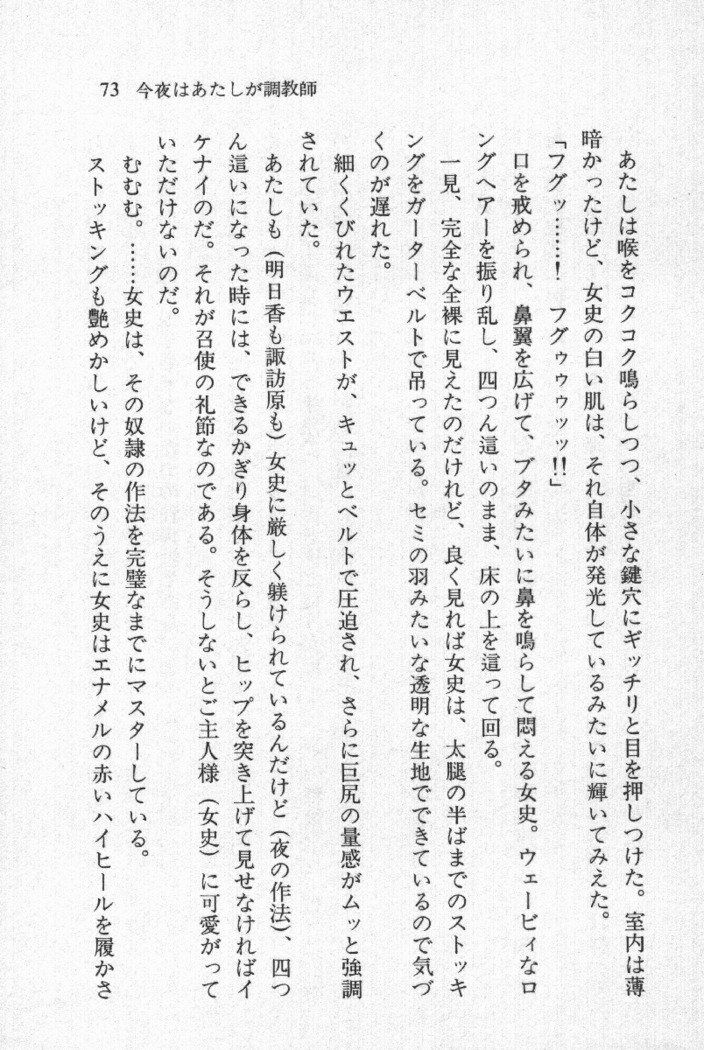 73 今夜はあたしが調教師
あたしは喉をコクコク鳴らしつつ、小さな鍵穴にギッチリと目を押しつけた。室内は薄
暗かったけど、女史の白い肌は、それ自体が発光しているみたいに輝いてみえた。
「フグッ……！　フグゥゥゥッッ!!」
口を戒められ、鼻翼を広げて、ブタみたいに鼻を鳴らして悶える女史。ウェービィなロ
ングヘアーを振り乱し、四つん這いのまま、床の上を這って回る。
一見、完全な全裸に見えたのだけれど、良く見れば女史は、太腿の半ばまでのストッキ
ングをガーターベルトで吊っている。セミの羽みたいな透明な生地でできているので気づ
くのが遅れた。
細くくびれたウエストが、キュッとベルトで圧迫され、さらに巨尻の量感がムッと強調
されていた。
あたしも（明日香も諏訪原も）女史に厳しく躾けられているんだけど（夜の作法）、四つ
ん這いになった時には、できるかぎり身体を反らし、ヒップを突き上げて見せなければイ
ケナイのだ。それが召使の礼節なのである。そうしないとご主人様（女史）に可愛がって
いただけないのだ。
むむむ。……女史は、その奴隷の作法を完璧なまでにマスターしている。
ストッキングも艶めかしいけど、そのうえに女史はエナメルの赤いハイヒールを履かさ